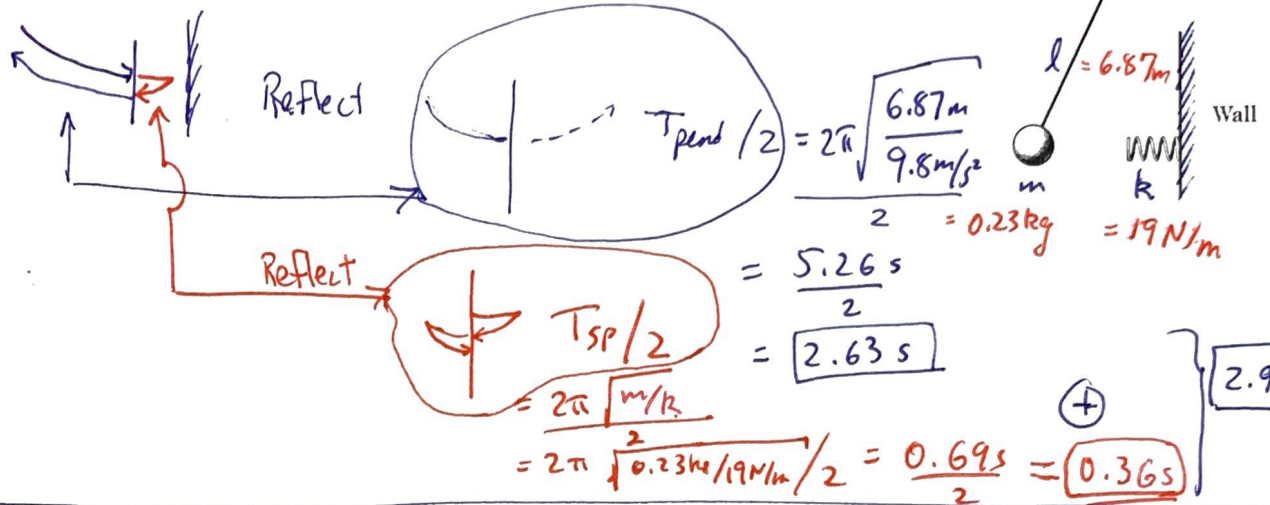 Reflect
T_pend/2 = 2π√(6.87m / 9.8m/s²) / 2
l = 6.87m
Wall
m = 0.23kg
k = 19N/m
= 5.26 s / 2
= 2.63 s
Reflect
T_sp/2
= 2π√(m/k) / 2
= 2π √(0.23kg/19N/m) / 2 = 0.69s / 2 = 0.36s
+
2.9